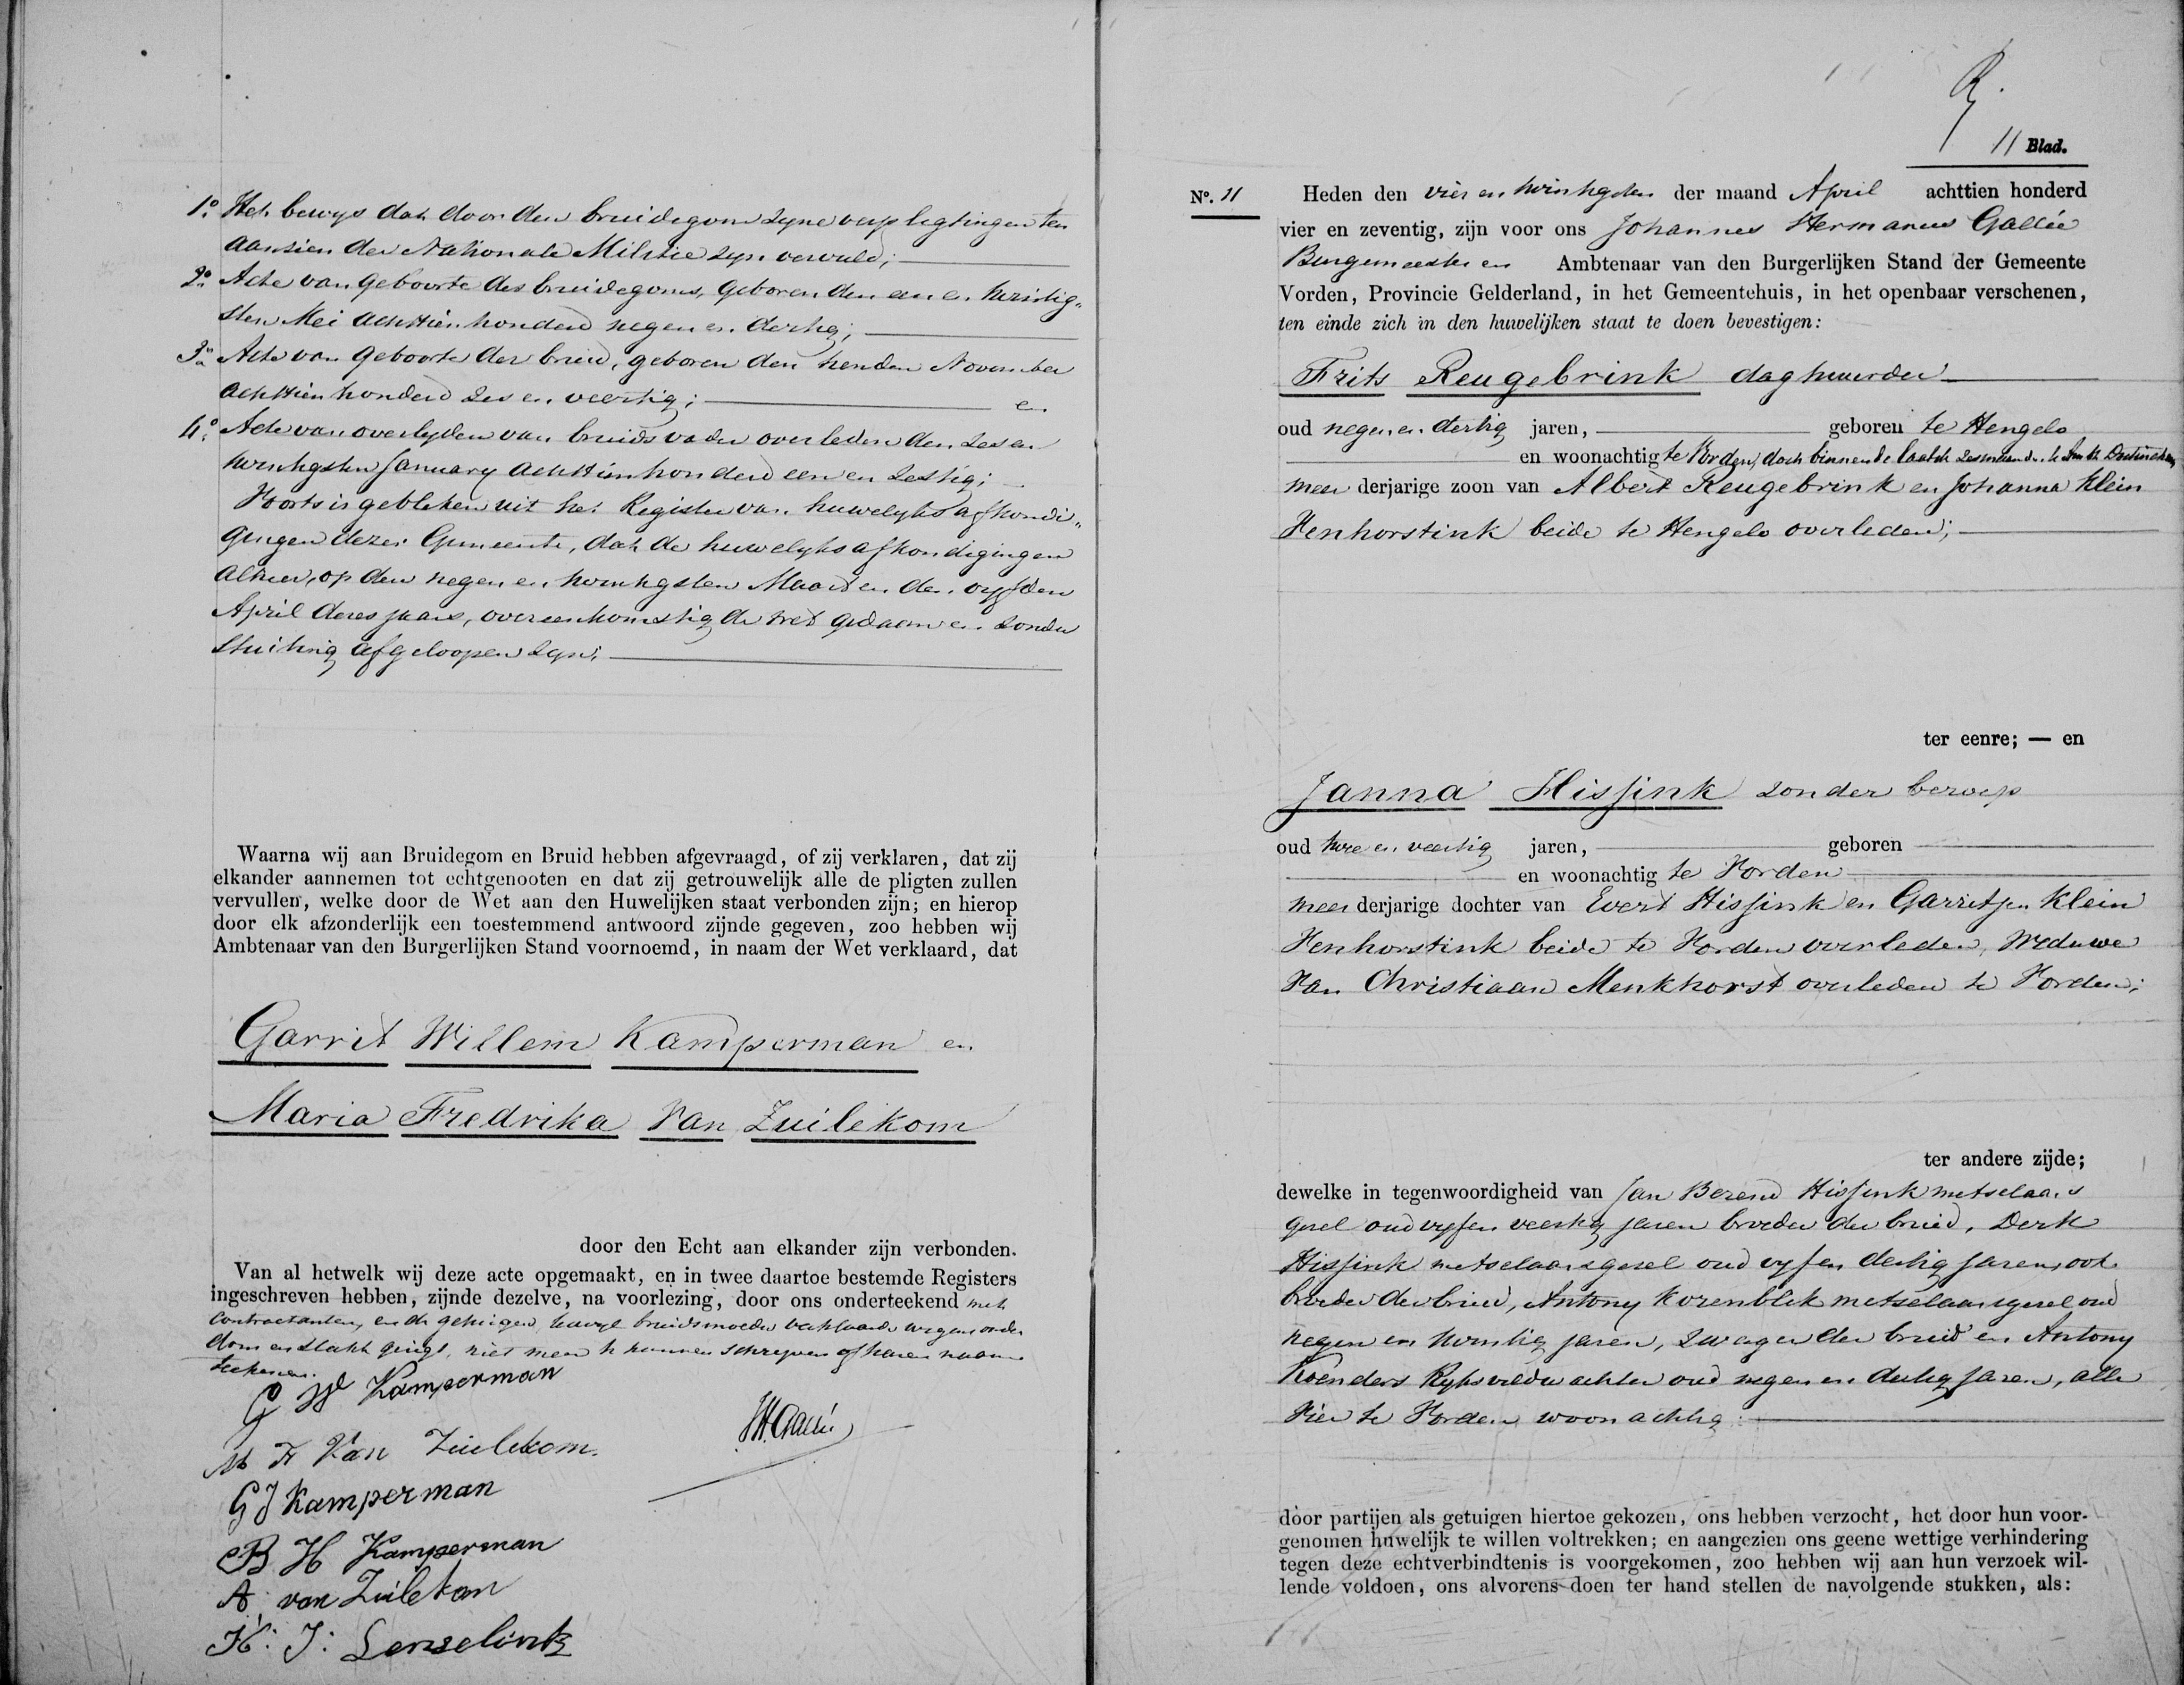 1º. Het bewys dat door den bruidegom zyne verpligtingen ten
aanzien der Nationale Militie zyn vervuld;
2º. Acte van geboorte des bruidegoms, geboren den een en twintig„
sten Mei achttien honderd negen en dertig;
3º. Acte van geboorte der bruid, geboren den tienden November
achttien honderd zes en veertig; en
4º. Acte van overlyden van bruids vader overleden den zes en
twintigsten January achttienhonderd een en zestig;
Voorts is gebleken uit het Register van huwelyks afkondi„
gingen dezer Gemeente, dat de huwelyks afkondigingen
alhier, op den negen en twintigsten Maart en den vyfden
April dezes jaars, overeenkomstig de wet gedaan en zonder
stuiting afgeloopen zyn;
Waarna wij aan Bruidegom en Bruid hebben afgevraagd, of zij verklaren, dat zij
elkander aannemen tot echtgenooten en dat zij getrouwelijk alle de pligten zullen
vervullen, welke door de Wet aan den Huwelijken staat verbonden zijn; en hierop
door elk afzonderlijk een toestemmend antwoord zijnde gegeven, zoo hebben wij
Ambtenaar van den Burgerlijken Stand voornoemd, in naam der Wet verklaard, dat
Garrit Willem Kamperman en
Maria Fredrika Van Zuilekom
door den Echt aan elkander zijn verbonden.
Van al hetwelk wij deze acte opgemaakt, en in twee daartoe bestemde Registers
ingeschreven hebben, zijnde dezelve, na voorlezing, door ons onderteekend met
Contractanten, en de getuigen, terwyl bruidsmoeder verklaarde wegens ouder
dom en zwakt gezigt, niet meer te kunnen schryven of haren naam
teekenen.
G W Kamperman
M F Van Zuilekom.
JH. Gallée
G J Kamperman
B H Kamperman
A van Zuilekom
H: J: Lenselink
R.
11 Blad.
Nº. 11 Heden den vier en twintigsten der maand April achttien honderd
vier en zeventig, zijn voor ons Johannes Hermanus Gallée
Burgemeester en Ambtenaar van den Burgerlijken Stand der Gemeente
Vorden, Provincie Gelderland, in het Gemeentehuis, in het openbaar verschenen,
ten einde zich in den huwelijken staat te doen bevestigen:
Frits Reugebrink daghuurder
oud negen en dertig jaren, geboren te Hengelo
en woonachtig te Vorden, doch binnen de laatste zes maanden te Doetinchem
meer derjarige zoon van Albert Reugebrink en Johanna Klein
Henhorstink beide te Hengelo overleden;
ter eenre; — en
Janna Hissink zonder beroep
oud twee en veertig jaren, geboren
en woonachtig te Vorden
meer derjarige dochter van Evert Hissink en Garritjen Klein
Henhorstink beide te Vorden overleden, Weduwe
van Christiaan Menkhorst overleden te Vorden;
ter andere zijde;
dewelke in tegenwoordigheid van Jan Berend Hissink metselaars
gezel oud vyf en veertig jaren broeder der bruid, Derk
Hissink metselaarsgezel oud vyf en dertig jaren, ook
broeder der bruid, Antony Korenblik metselaarsgezel oud
negen en twintig jaren, zwager der bruid en Antony
Koenders Ryksveldwachter oud negen en dertig jaren, alle
vier te Vorden woonachtig;
door partijen als getuigen hiertoe gekozen, ons hebben verzocht, het door hun voor-
genomen huwelijk te willen voltrekken; en aangezien ons geene wettige verhindering
tegen deze echtverbindtenis is voorgekomen, zoo hebben wij aan hun verzoek wil-
lende voldoen, ons alvorens doen ter hand stellen de navolgende stukken, als: